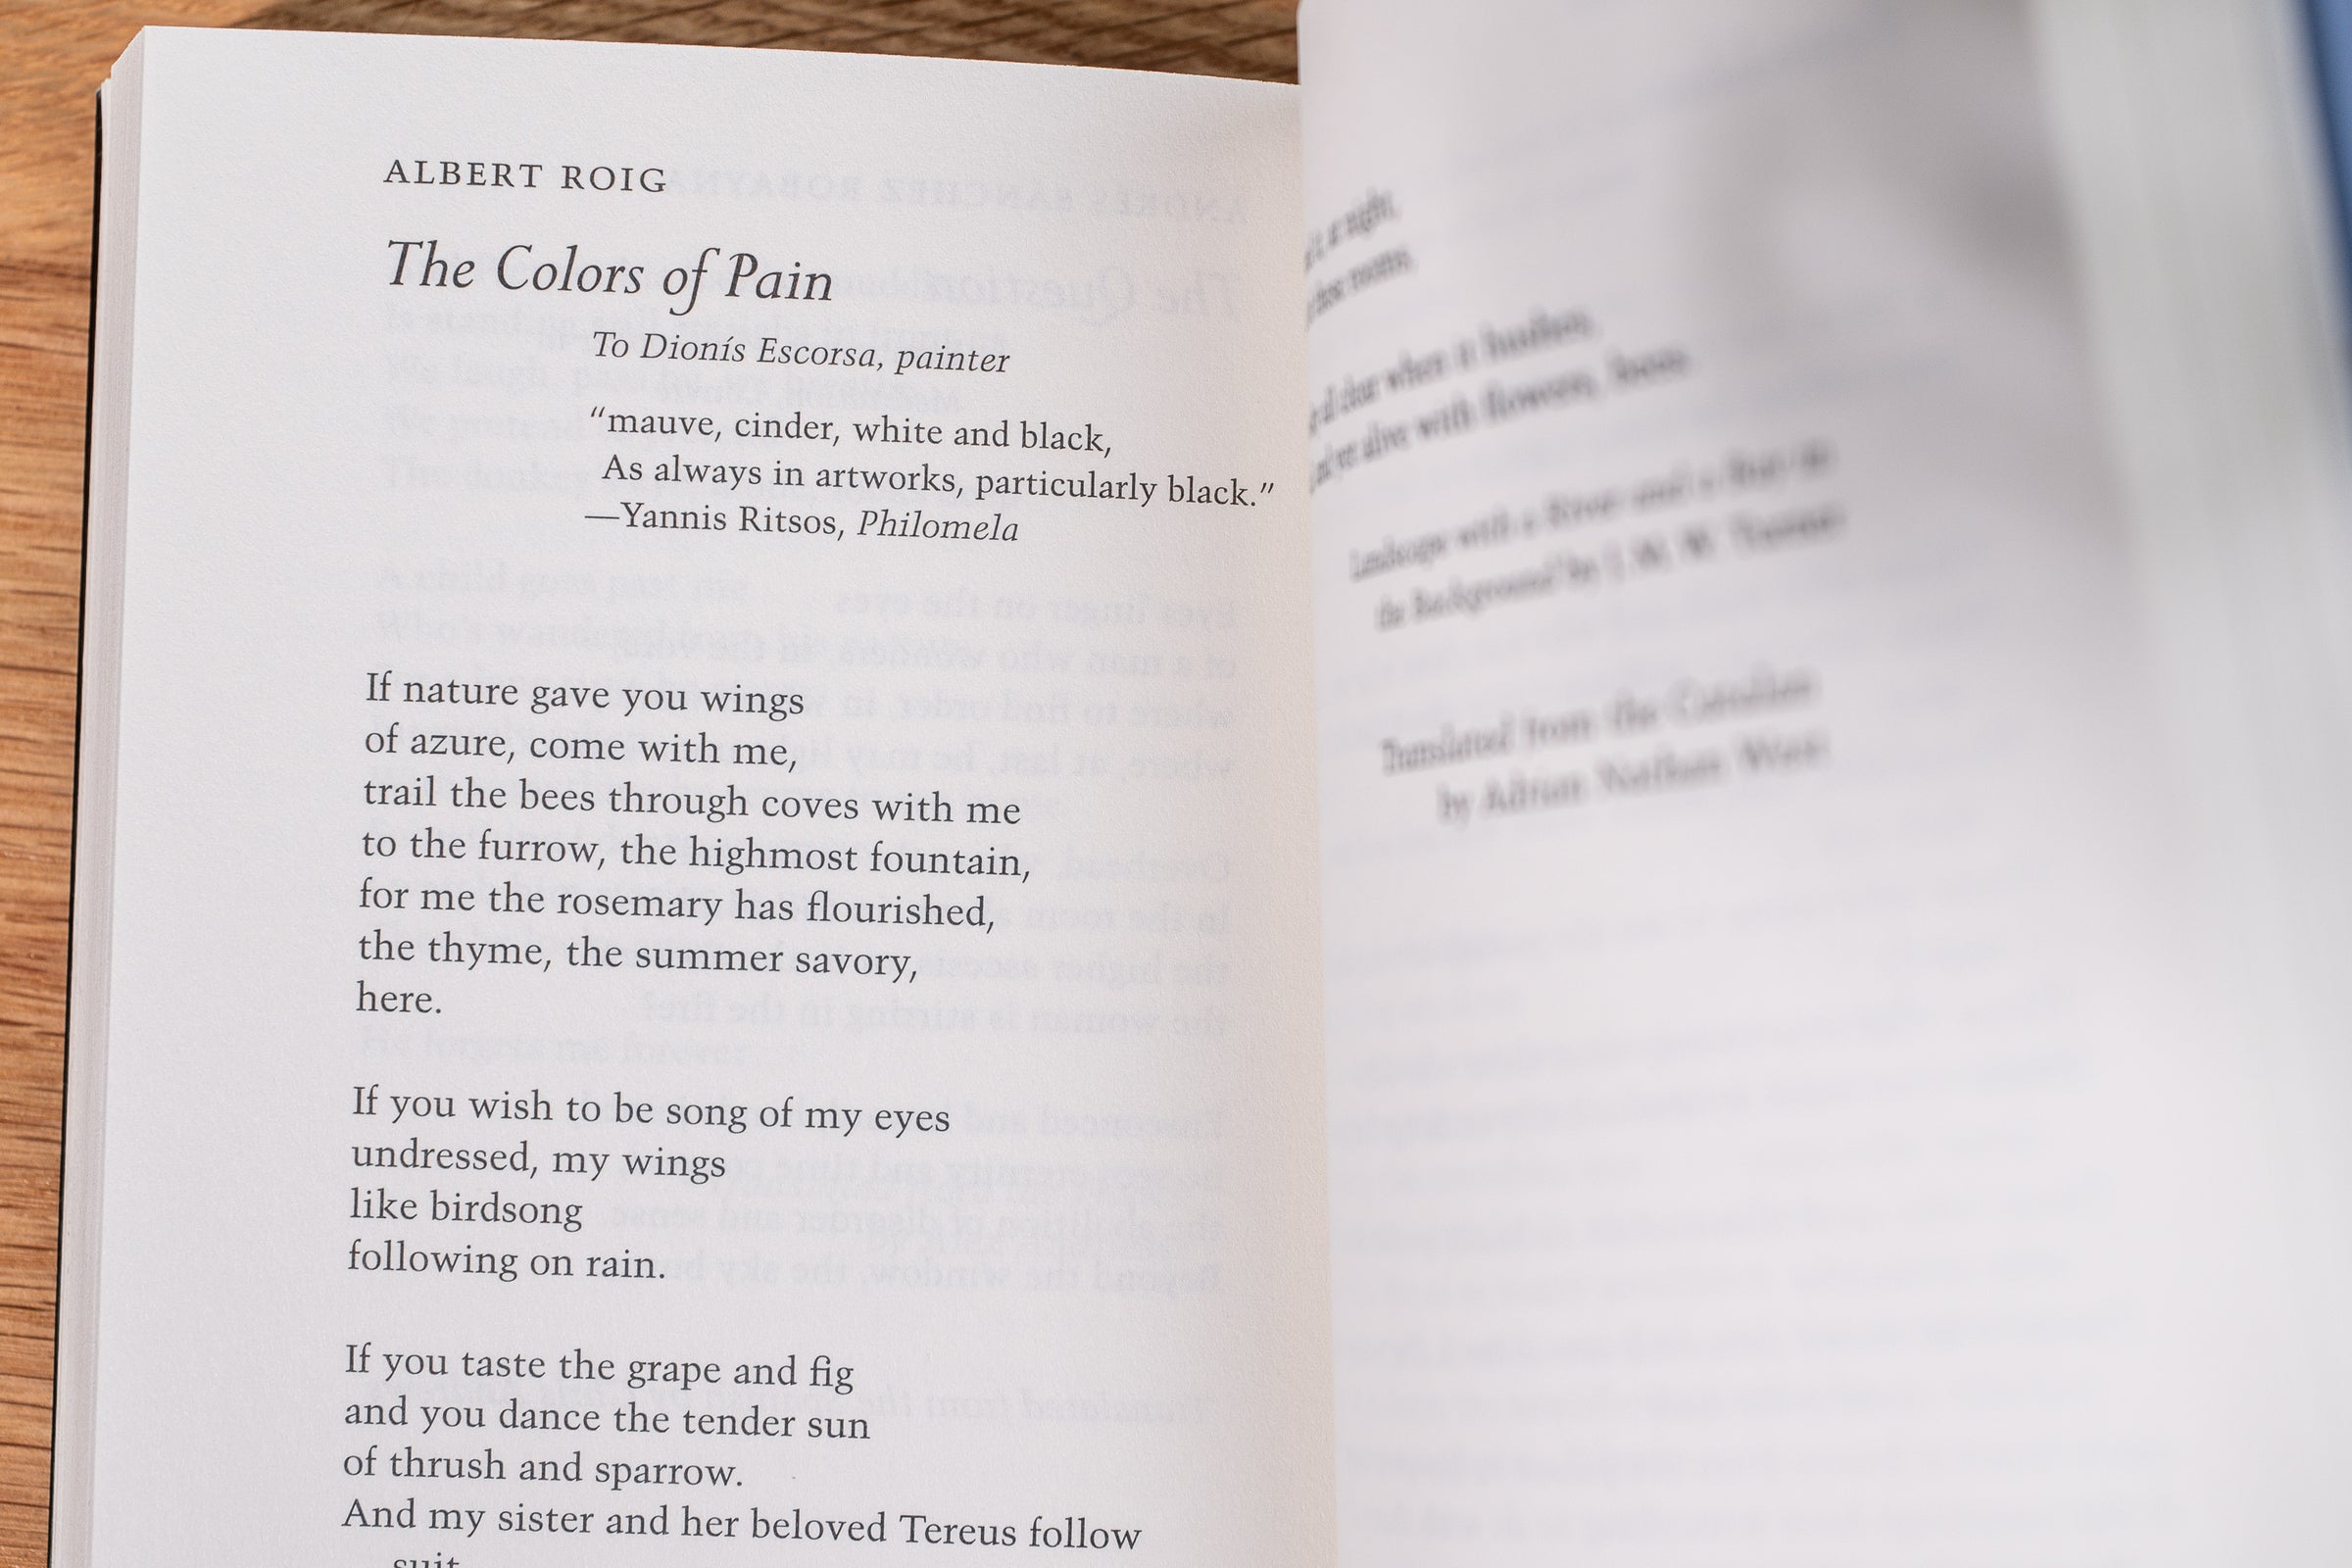 ALBERT ROIG
The Colors of Pain
To Dionís Escorsa, painter
“mauve, cinder, white and black,
As always in artworks, particularly black.”
—Yannis Ritsos, Philomela
If nature gave you wings
of azure, come with me,
trail the bees through coves with me
to the furrow, the highmost fountain,
for me the rosemary has flourished,
the thyme, the summer savory,
here.
If you wish to be song of my eyes
undressed, my wings
like birdsong
following on rain.
If you taste the grape and fig
and you dance the tender sun
of thrush and sparrow.
And my sister and her beloved Tereus follow
suit
at night,
that rooms,
all that when it hushes,
alive with flowers,
Landscape with a River and a Bay in
the Background by J. W. M. Turner
Translated from the Catalan
by Adrian Nathan West